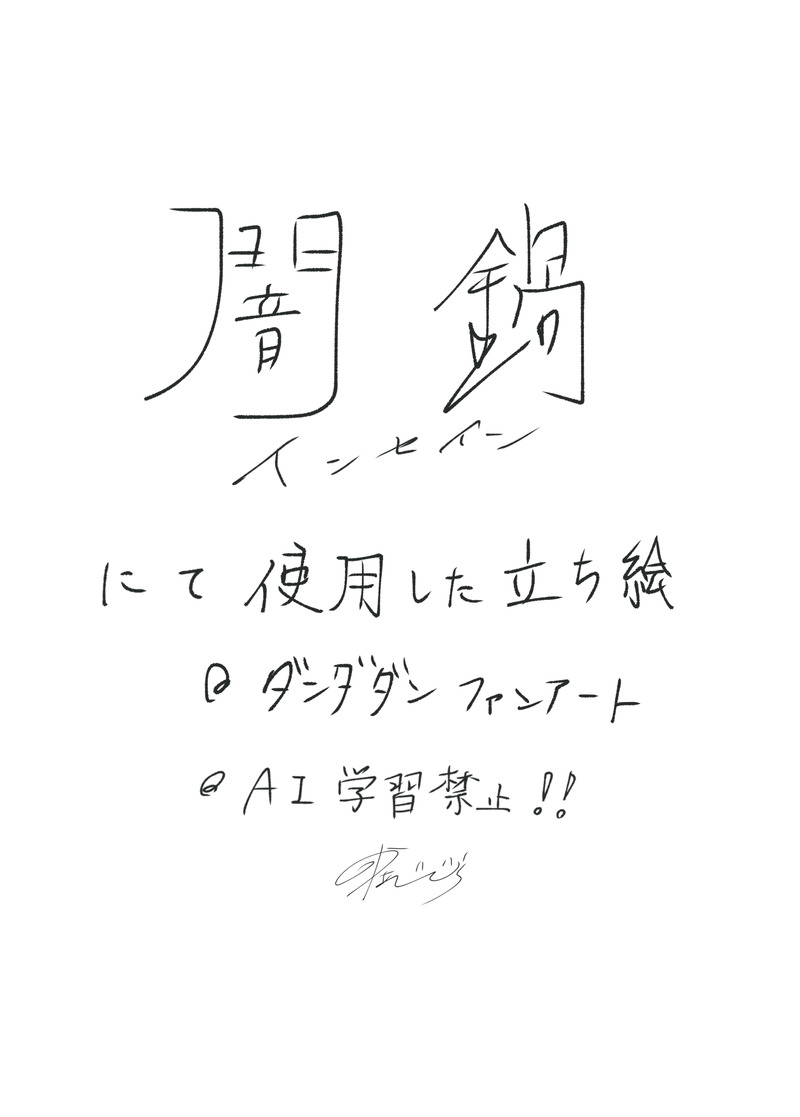 闇鍋
インセイン
にて使用した立ち絵
@ ダンダダン ファンアート
@ AI学習禁止!!